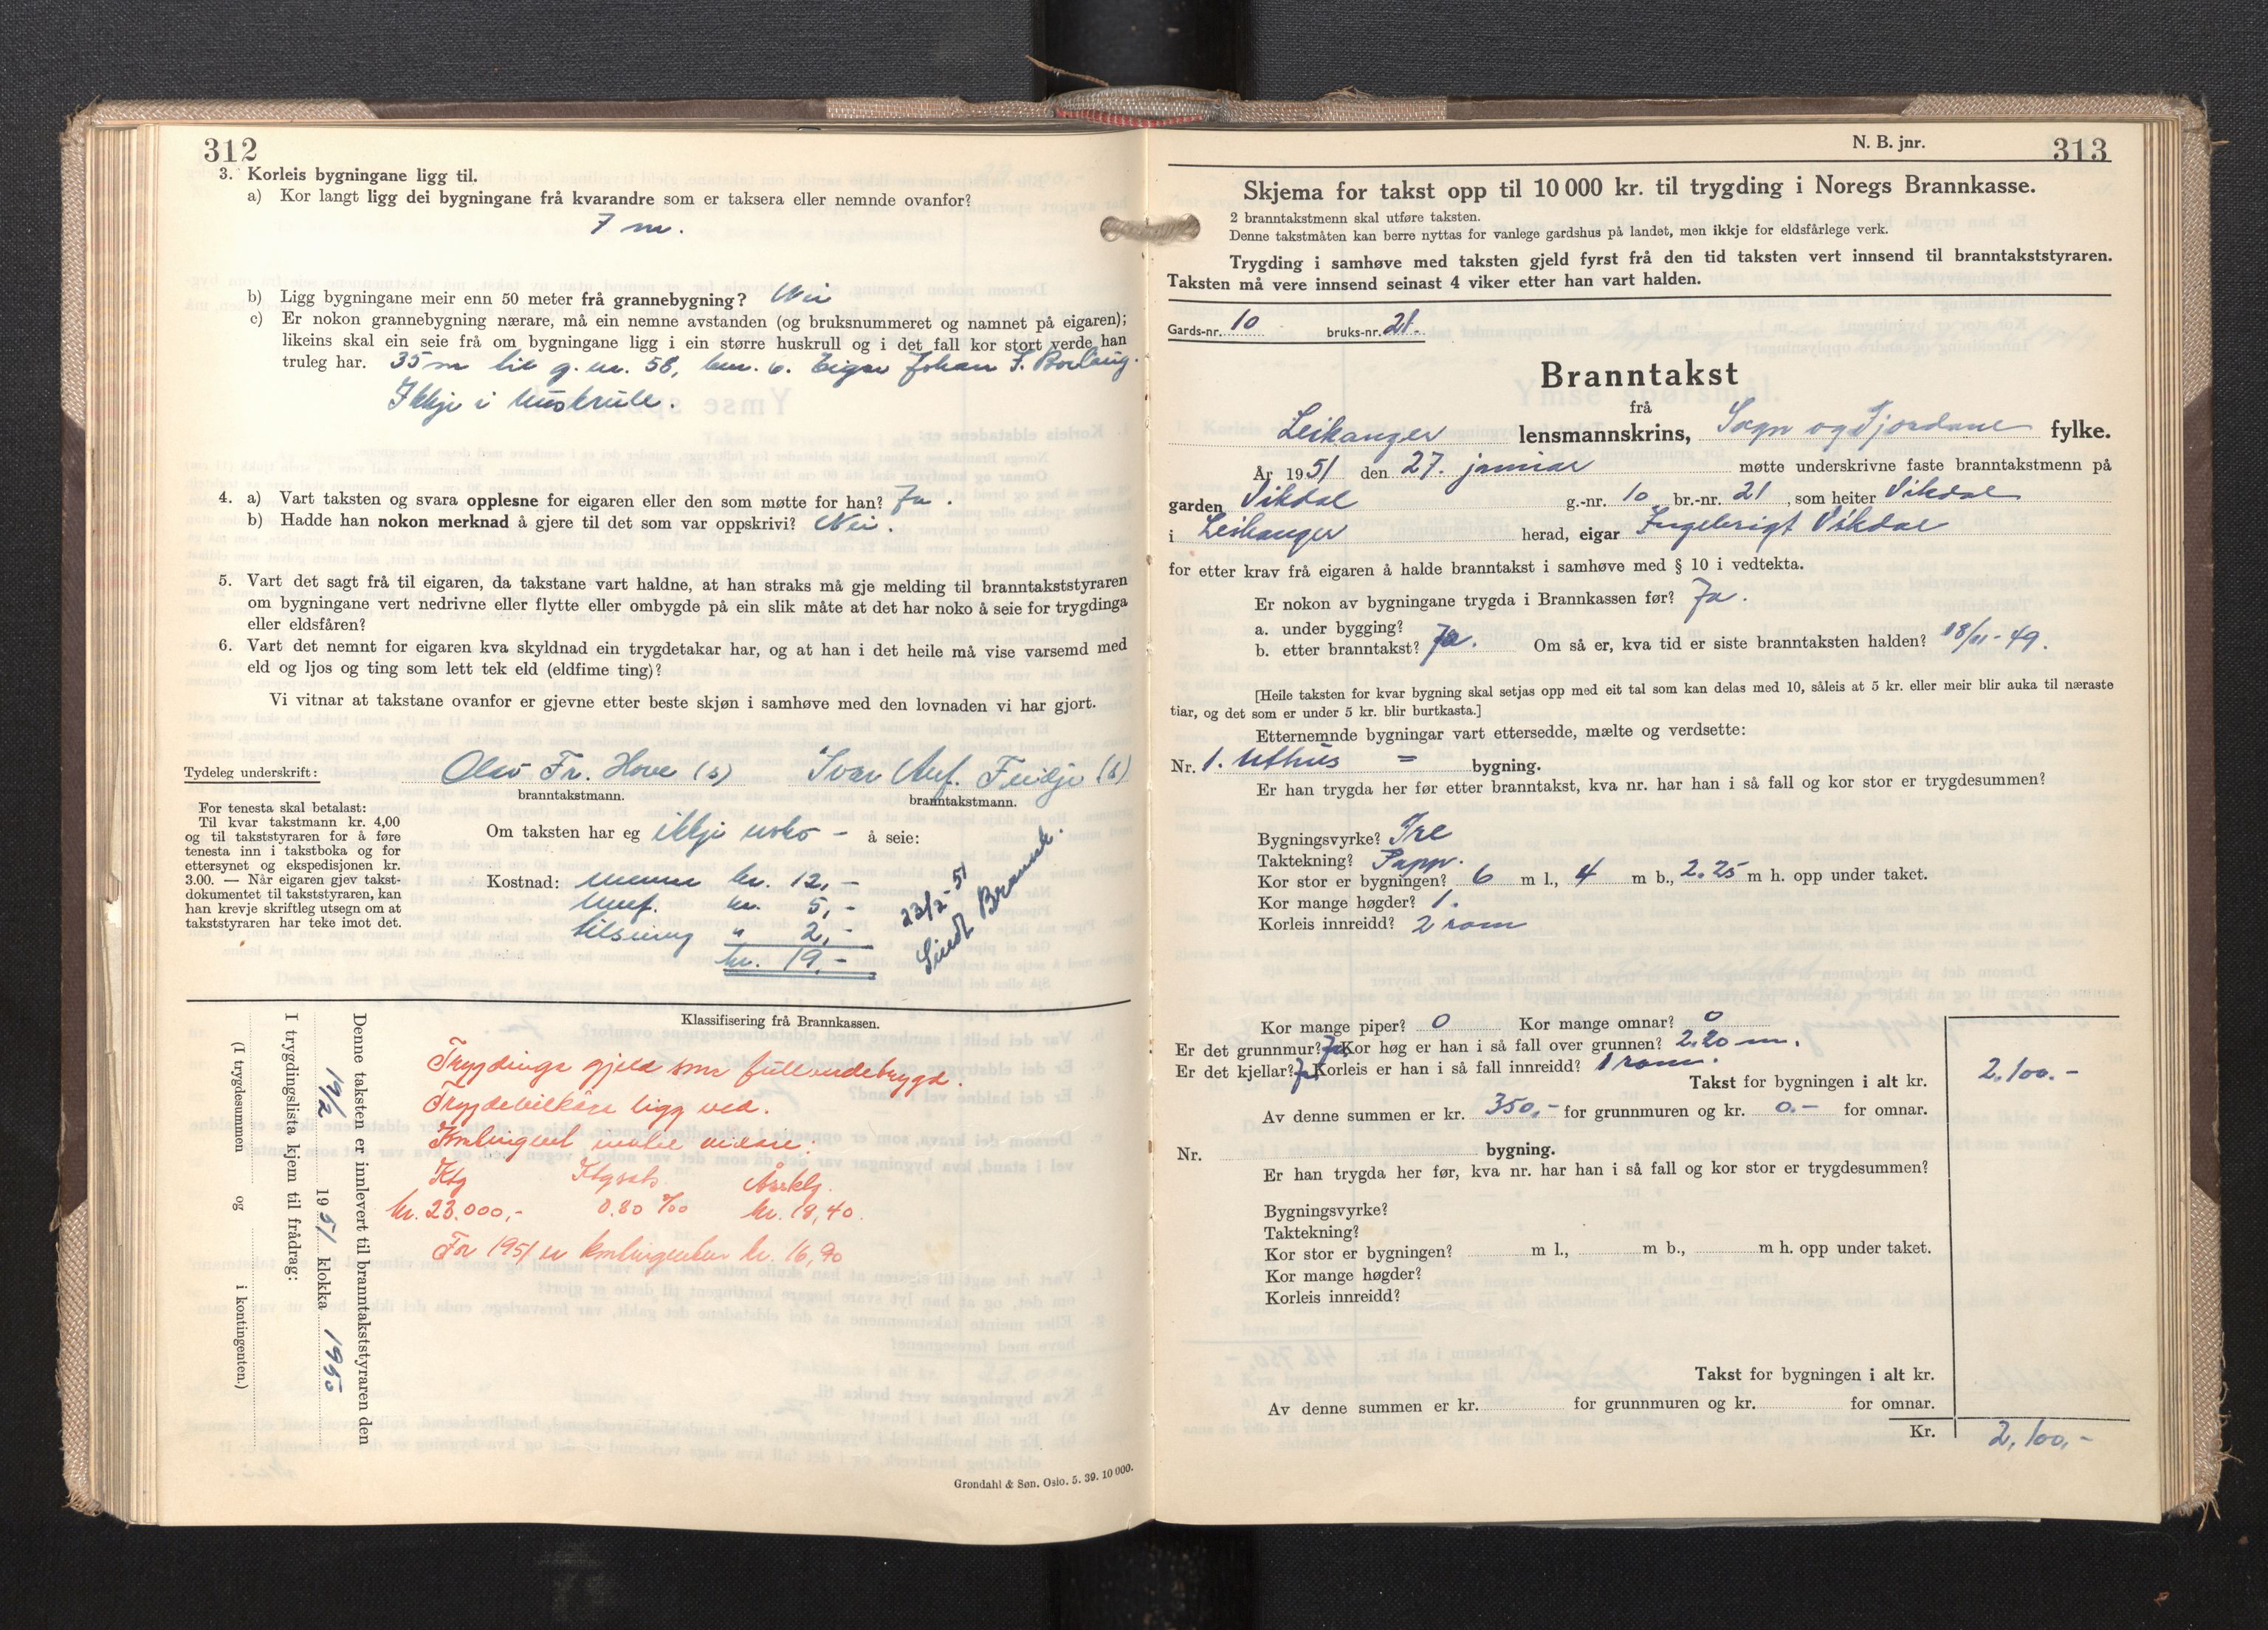 312
3. Korleis bygningane ligg til.
a) Kor langt ligg dei bygningane frå kvarandre som er taksera eller nemnde ovanfor?
7 m.
b) Ligg bygningane meir enn 50 meter frå grannebygning? Nei
c) Er nokon grannebygning nærare, må ein nemne avstanden (og bruksnummeret og namnet på eigaren);
likeins skal ein seie frå om bygningane ligg i ein større huskrull og i det fall kor stort verde han
truleg har. 35 m til g. nr. 58, bnr. 6. Eigar Johan J. Borlaug.
Ikkje i huskrull.
4. a) Vart taksten og svara opplesne for eigaren eller den som møtte for han? Ja.
b) Hadde han nokon merknad å gjere til det som var oppskrivi? Nei.
5. Vart det sagt frå til eigaren, da takstane vart haldne, at han straks må gje melding til branntakststyraren
om bygningane vert nedrivne eller flytte eller ombygde på ein slik måte at det har noko å seie for trygdinga
eller eldsfåren?
6. Vart det nemnt for eigaren kva skyldnad ein trygdetakar har, og at han i det heile må vise varsemd med
eld og ljos og ting som lett tek eld (eldfime ting)?
Vi vitnar at takstane ovanfor er gjevne etter beste skjøn i samhøve med den lovnaden vi har gjort.
Tydeleg underskrift: Olav Fr. Hove (s) Ivar Anf. Feidje (s)
branntakstmann. branntakstmann.
For tenesta skal betalast:
Til kvar takstmann kr. 4,00
og til takststyraren for å føre
tenesta inn i takstboka og for
ettersynet og ekspedisjonen kr.
3.00. — Når eigaren gjev takst-
dokumentet til takststyraren, kan
han krevje skriftleg utsegn om at
takststyraren har teke imot det.
Om taksten har eg ikkje noko - å seie:
Kostnad: menn kr. 12,-
kr. 5,-
tilsyning " 2,-
kr. 19,-
23/2-51
Sendt Brannk.
Klassifisering frå Brannkassen.
Trygdinga gjeld som fullendebygd.
Trygdevilkåra ligg ved.
Kontingent
Ktg Ktgsats Årsktg.
kr. 23.000,- 0.80 ‰ kr. 18,40.
For 1951 er kontingenten kr. 16,90
Denne taksten er innlevert til branntakststyraren den
19/2 1951 klokka 1955
I trygdingslista kjem til frådrag:
(I trygdesummen og i kontingenten.)
Grøndahl & Søn. Oslo. 5. 39. 10 000.
N. B. jnr. 313
Skjema for takst opp til 10 000 kr. til trygding i Noregs Brannkasse.
2 branntakstmenn skal utføre taksten.
Denne takstmåten kan berre nyttas for vanlege gardshus på landet, men ikkje for eldsfårlege verk.
Trygding i samhøve med taksten gjeld fyrst frå den tid taksten vert innsend til branntakststyraren.
Taksten må vere innsend seinast 4 viker etter han vart halden.
Gards-nr. 10 bruks-nr. 21.
Branntakst
frå
Leikanger lensmannskrins, Sogn og Fjordane fylke.
År 1951 den 27. januar møtte underskrivne faste branntakstmenn på
garden Vikdal g.-nr. 10 br.-nr. 21, som heiter Vikdal
i Leikanger herad, eigar Ingebrigt Vikdal
for etter krav frå eigaren å halde branntakst i samhøve med § 10 i vedtekta.
Er nokon av bygningane trygda i Brannkassen før? Ja.
a. under bygging?
b. etter branntakst? Ja. Om så er, kva tid er siste branntaksten halden? 18/11-49.
[Heile taksten for kvar bygning skal setjas opp med eit tal som kan delas med 10, såleis at 5 kr. eller meir blir auka til næraste
tiar, og det som er under 5 kr. blir burtkasta.]
Etternemnde bygningar vart ettersedde, mælte og verdsette:
Nr. 1. Uthus = bygning.
Er han trygda her før etter branntakst, kva nr. har han i så fall og kor stor er trygdesummen?
Bygningsvyrke? Tre
Taktekning? Papp.
Kor stor er bygningen? 6 m l., 4 m b., 2.25 m h. opp under taket.
Kor mange høgder? 1.
Korleis innreidd? 2 rom
Kor mange piper? 0 Kor mange omnar? 0
Er det grunnmur? Ja Kor høg er han i så fall over grunnen? 2.20 m.
Er det kjellar? Ja Korleis er han i så fall innreidd? 1 rom.
Takst for bygningen i alt kr. 2.100.-
Av denne summen er kr. 350,- for grunnmuren og kr. 0.- for omnar.
Nr. bygning.
Er han trygda her før, kva nr. har han i så fall og kor stor er trygdesummen?
Bygningsvyrke?
Taktekning?
Kor stor er bygningen? m l., m b., m h. opp under taket.
Kor mange høgder?
Korleis innreidd?
Takst for bygningen i alt kr.
Av denne summen er kr. for grunnmuren og kr. for omnar.
Kr. 2,100,-